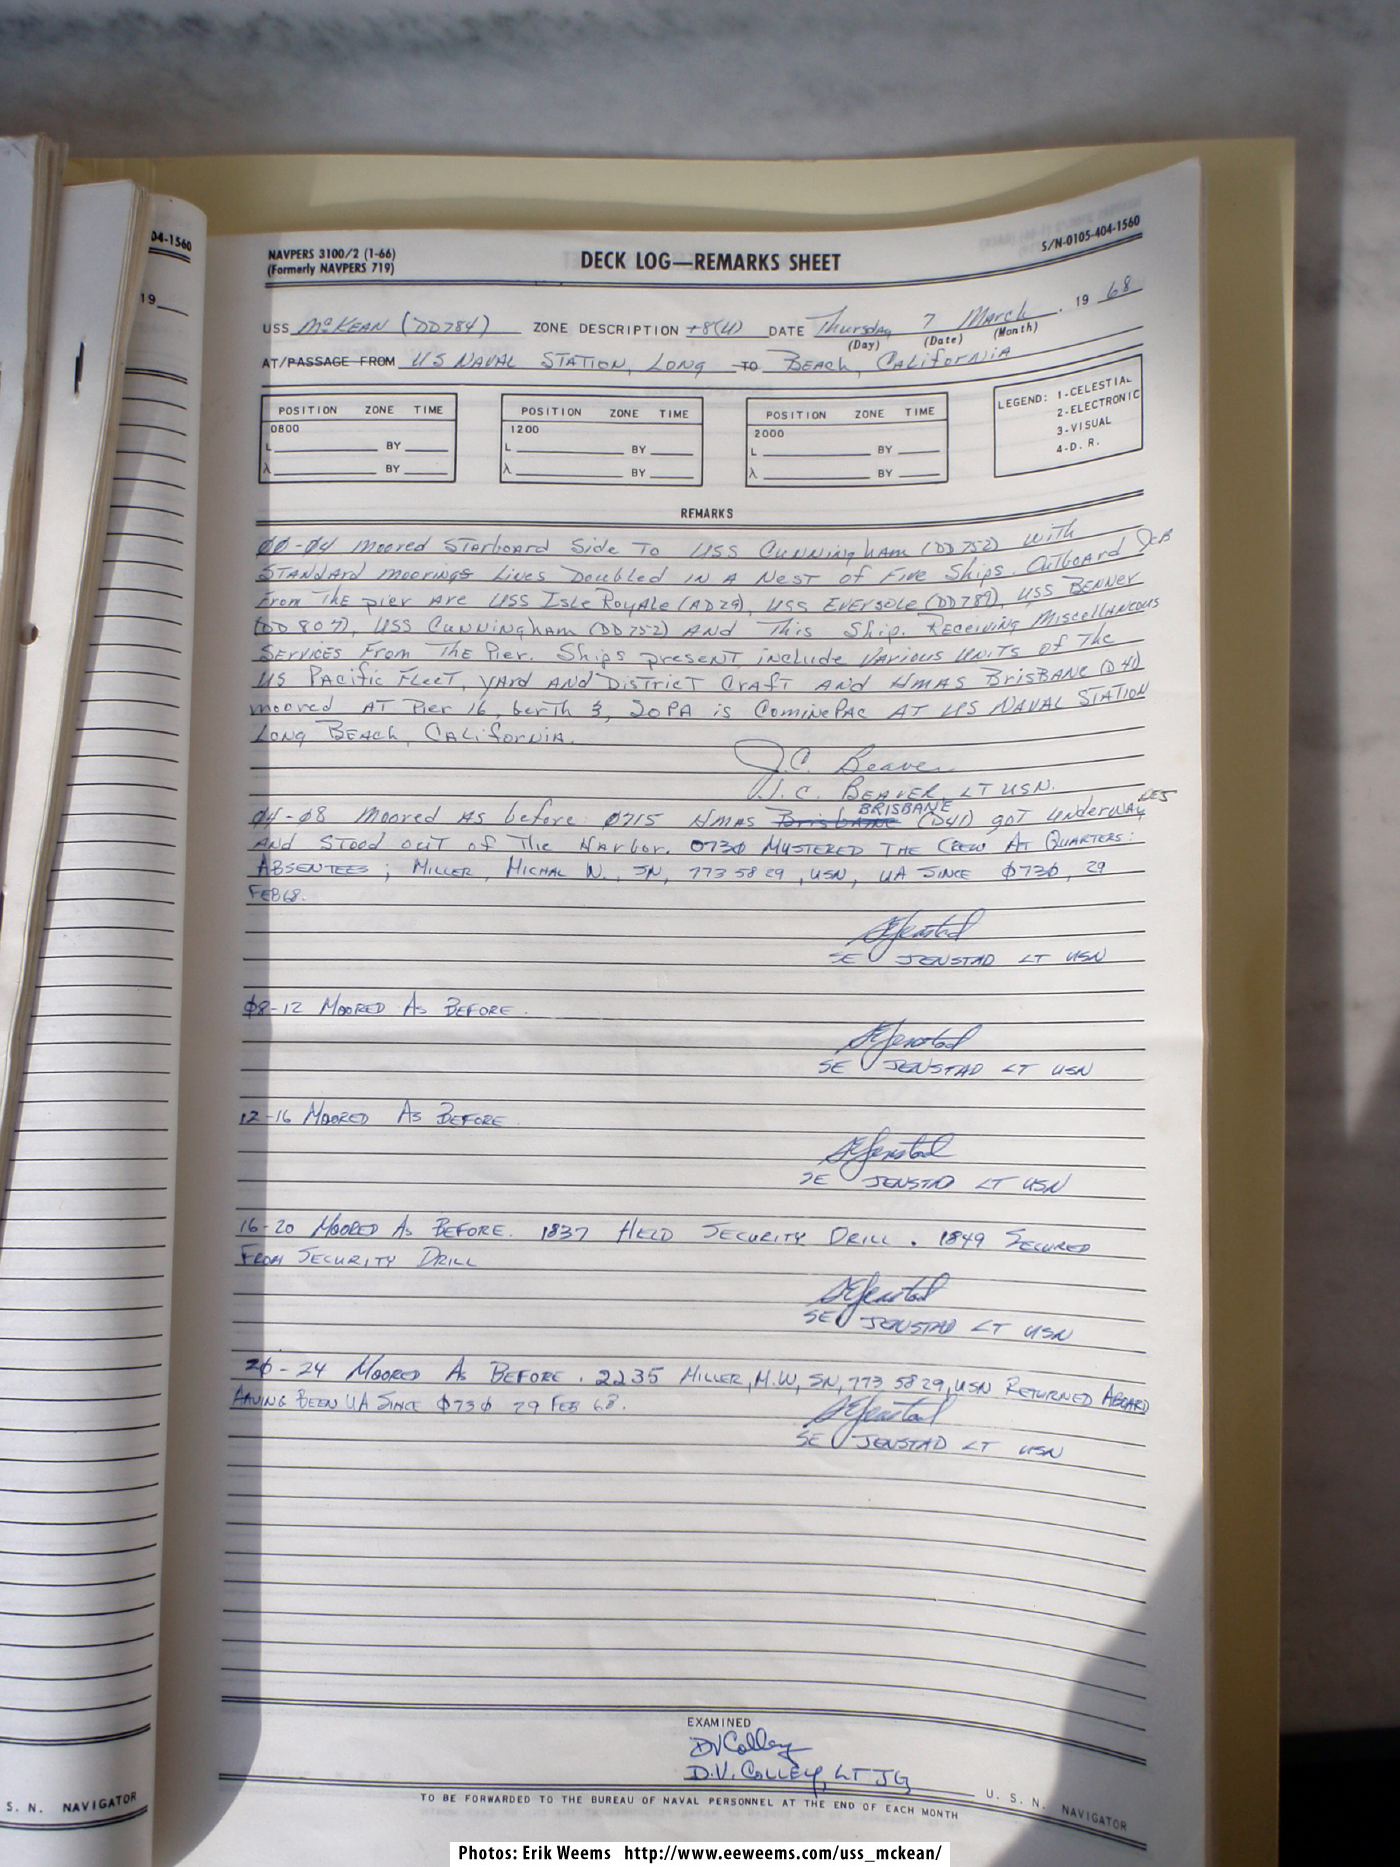 04-1560
19
NAVPERS 3100/2 (1-66)
(Formerly NAVPERS 719)
DECK LOG—REMARKS SHEET
S/N-0105-404-1560
USS McKEAN (DD784) ZONE DESCRIPTION +8(U) DATE Thursday 7 March, 19 68
(Day) (Date) (Month)
AT/PASSAGE FROM US NAVAL STATION, LONG TO BEACH, CALIFORNIA
POSITION ZONE TIME
0800
L BY
λ BY
POSITION ZONE TIME
1200
L BY
λ BY
POSITION ZONE TIME
2000
L BY
λ BY
LEGEND: 1-CELESTIAL
2-ELECTRONIC
3-VISUAL
4-D. R.
REMARKS
00-04 moored Starboard Side To USS Cunningham (DD 752) with
STANDARD moorings Lines Doubled IN A NEST of Five Ships. Outboard JCB
From The pier Are USS Isle Royale (AD29), USS EVERSOLE (DD789), USS BENNER
(DD 807), USS Cunningham (DD752) AND This Ship. Receiving Miscellaneous
Services From The Pier. Ships present include Various Units of The
US Pacific Fleet, yard AND District Craft And HMAS BRISBANE (D41)
moored AT Pier 16, berth 3, SOPA is CominePac AT US NAVAL STATION
Long BEACH, CALIFORNIA.
J.C. Beaver
J.C. BEAVER, LT USN.
04-08 Moored As before: 0715 HMAS Brisbane BRISBANE (D41) got underway
AND STOOD OUT of The Harbor. 0730 MUSTERED THE CREW AT QUARTERS:
ABSENTEES; MILLER, MICHAL W., SN, 773 58 29, USN, UA SINCE 0730, 29
FEB68.
SE Jenstad
SE JENSTAD LT USN
08-12 MOORED AS BEFORE.
SE Jenstad
SE JENSTAD LT USN
12-16 MOORED AS BEFORE.
SE Jenstad
SE JENSTAD LT USN
16-20 MOORED AS BEFORE. 1837 HELD SECURITY DRILL. 1849 SECURED
FROM SECURITY DRILL
SE Jenstad
SE JENSTAD LT USN
20-24 MOORED AS BEFORE. 2235 MILLER, M.W, SN, 773 58 29, USN RETURNED ABOARD
HAVING BEEN UA SINCE 0730 29 FEB 68.
SE Jenstad
SE JENSTAD LT USN
EXAMINED
DVColley
D.V. COLLEY, LT JG
U. S. N. NAVIGATOR
S. N. NAVIGATOR
TO BE FORWARDED TO THE BUREAU OF NAVAL PERSONNEL AT THE END OF EACH MONTH
Photos: Erik Weems http://www.eeweems.com/uss_mckean/